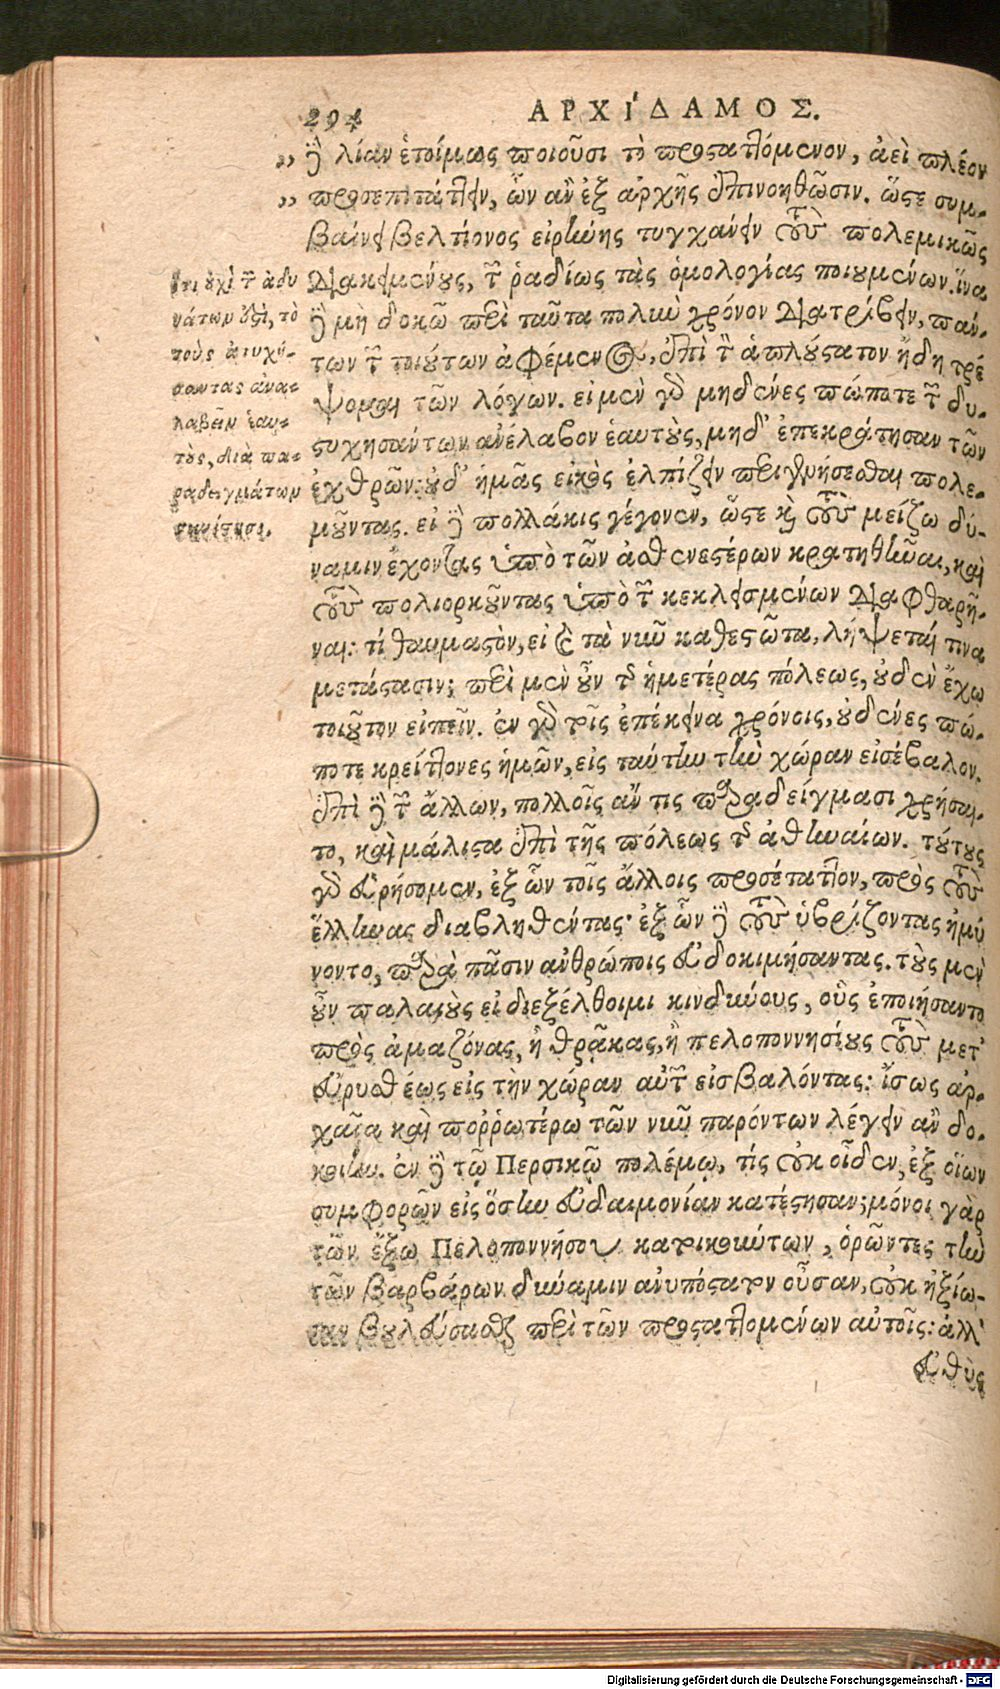 294
ΑΡΧΙ΄ΔΑΜΟΣ.
„ δὲ λίαν ἑτοίμως ποιοῦσι τὸ προσταττόμενον, ἀεὶ πλέον
„ προσεπιτάττειν, ὧν ἂν ἐξ ἀρχῆς ἐπινοηθῶσιν. ὥστε συμ-
βαίνει βελτίονος εἰρήνης τυγχάνειν τοὺς πολεμικῶς
διακειμένους, τῶν ῥαδίως τὰς ὁμολογίας ποιουμένων. ἵνα
δὲ μὴ δοκῶ περὶ ταῦτα πολὺν χρόνον διατρίβειν, πάν-
των τῶν τοιούτων ἀφέμενος, ἐπὶ τὸ ἁπλούστατον ἤδη τρέ
ψομαι τῶν λόγων. εἰ μὲν γὰρ μηδένες πώποτε τῶν δυ-
στυχησάντων ἀνέλαβον ἑαυτοὺς, μηδ' ἐπεκράτησαν τῶν
ἐχθρῶν: οὐδ' ἡμᾶς εἰκὸς ἐλπίζειν περιγενήσεσθαι πολε-
μοῦντας. εἰ δὲ πολλάκις γέγονεν, ὥστε καὶ τοὺς μείζω δύ-
ναμιν ἔχοντας ὑπὸ τῶν ἀσθενεστέρων κρατηθῆναι, καὶ
τοὺς πολιορκοῦντας ὑπὸ τῶν κεκλεισμένων διαφθαρῆ-
ναι: τί θαυμαστὸν, εἰ καὶ τὰ νῦν καθεστῶτα, λήψεταί τινα
μετάστασιν; περὶ μὲν οὖν τῆς ἡμετέρας πόλεως, οὐδὲν ἔχω
τοιοῦτον εἰπεῖν. ἐν γὰρ τοῖς ἐπέκεινα χρόνοις, οὐδένες πώ-
ποτε κρείττονες ἡμῶν, εἰς ταύτην τὴν χώραν εἰσέβαλον.
ἐπὶ δὲ τῶν ἄλλων, πολλοῖς ἄν τις παραδείγμασι χρήσαι-
το, καὶ μάλιστα ἐπὶ τῆς πόλεως τῆς ἀθηναίων. τούτους
γὰρ εὑρήσομεν, ἐξ ὧν τοῖς ἄλλοις προσέταττον, πρὸς τοὺς
ἕλληνας διαβληθέντας· ἐξ ὧν δὲ τοὺς ὑβρίζοντας ἠμύ
νοντο, παρὰ πᾶσιν ἀνθρώποις εὐδοκιμήσαντας. τοὺς μὲν
οὖν παλαιοὺς εἰ διεξέλθοιμι κινδύνους, οὓς ἐποιήσαντο
πρὸς ἀμαζόνας, ἢ θρᾷκας, ἢ πελοποννησίους τοὺς μετ'
εὐρυσθέως εἰς τὴν χώραν αὐτῶν εἰσβαλόντας: ἴσως ἀρ-
χαῖα καὶ ποῤῥωτέρω τῶν νῦν παρόντων λέγειν ἂν δο-
κοίην. ἐν δὲ τῷ Περσικῷ πολέμῳ, τίς οὐκ οἶδεν, ἐξ οἵων
συμφορῶν εἰς ὅσην εὐδαιμονίαν κατέστησαν; μόνοι γὰρ
τῶν ἔξω Πελοποννήσου κατοικούντων, ὁρῶντες τὴν
τῶν βαρβάρων δύναμιν ἀνυπόστατον οὖσαν, οὐκ ἠξίω-
σαν βουλεύσασθαι περὶ τῶν προσταττομένων αὐτοῖς: ἀλλ'
εὐθὺς
ὅτι οὐχὶ τῶν ἀδυ
νάτων ἐστὶ, τὸ
τοὺς ἀτυχή-
σαντας ἀνα-
λαβεῖν ἑαυ-
τοὺς, διὰ πα-
ραδειγμάτων
Digitalisierung gefördert durch die Deutsche Forschungsgemeinschaft - DFG